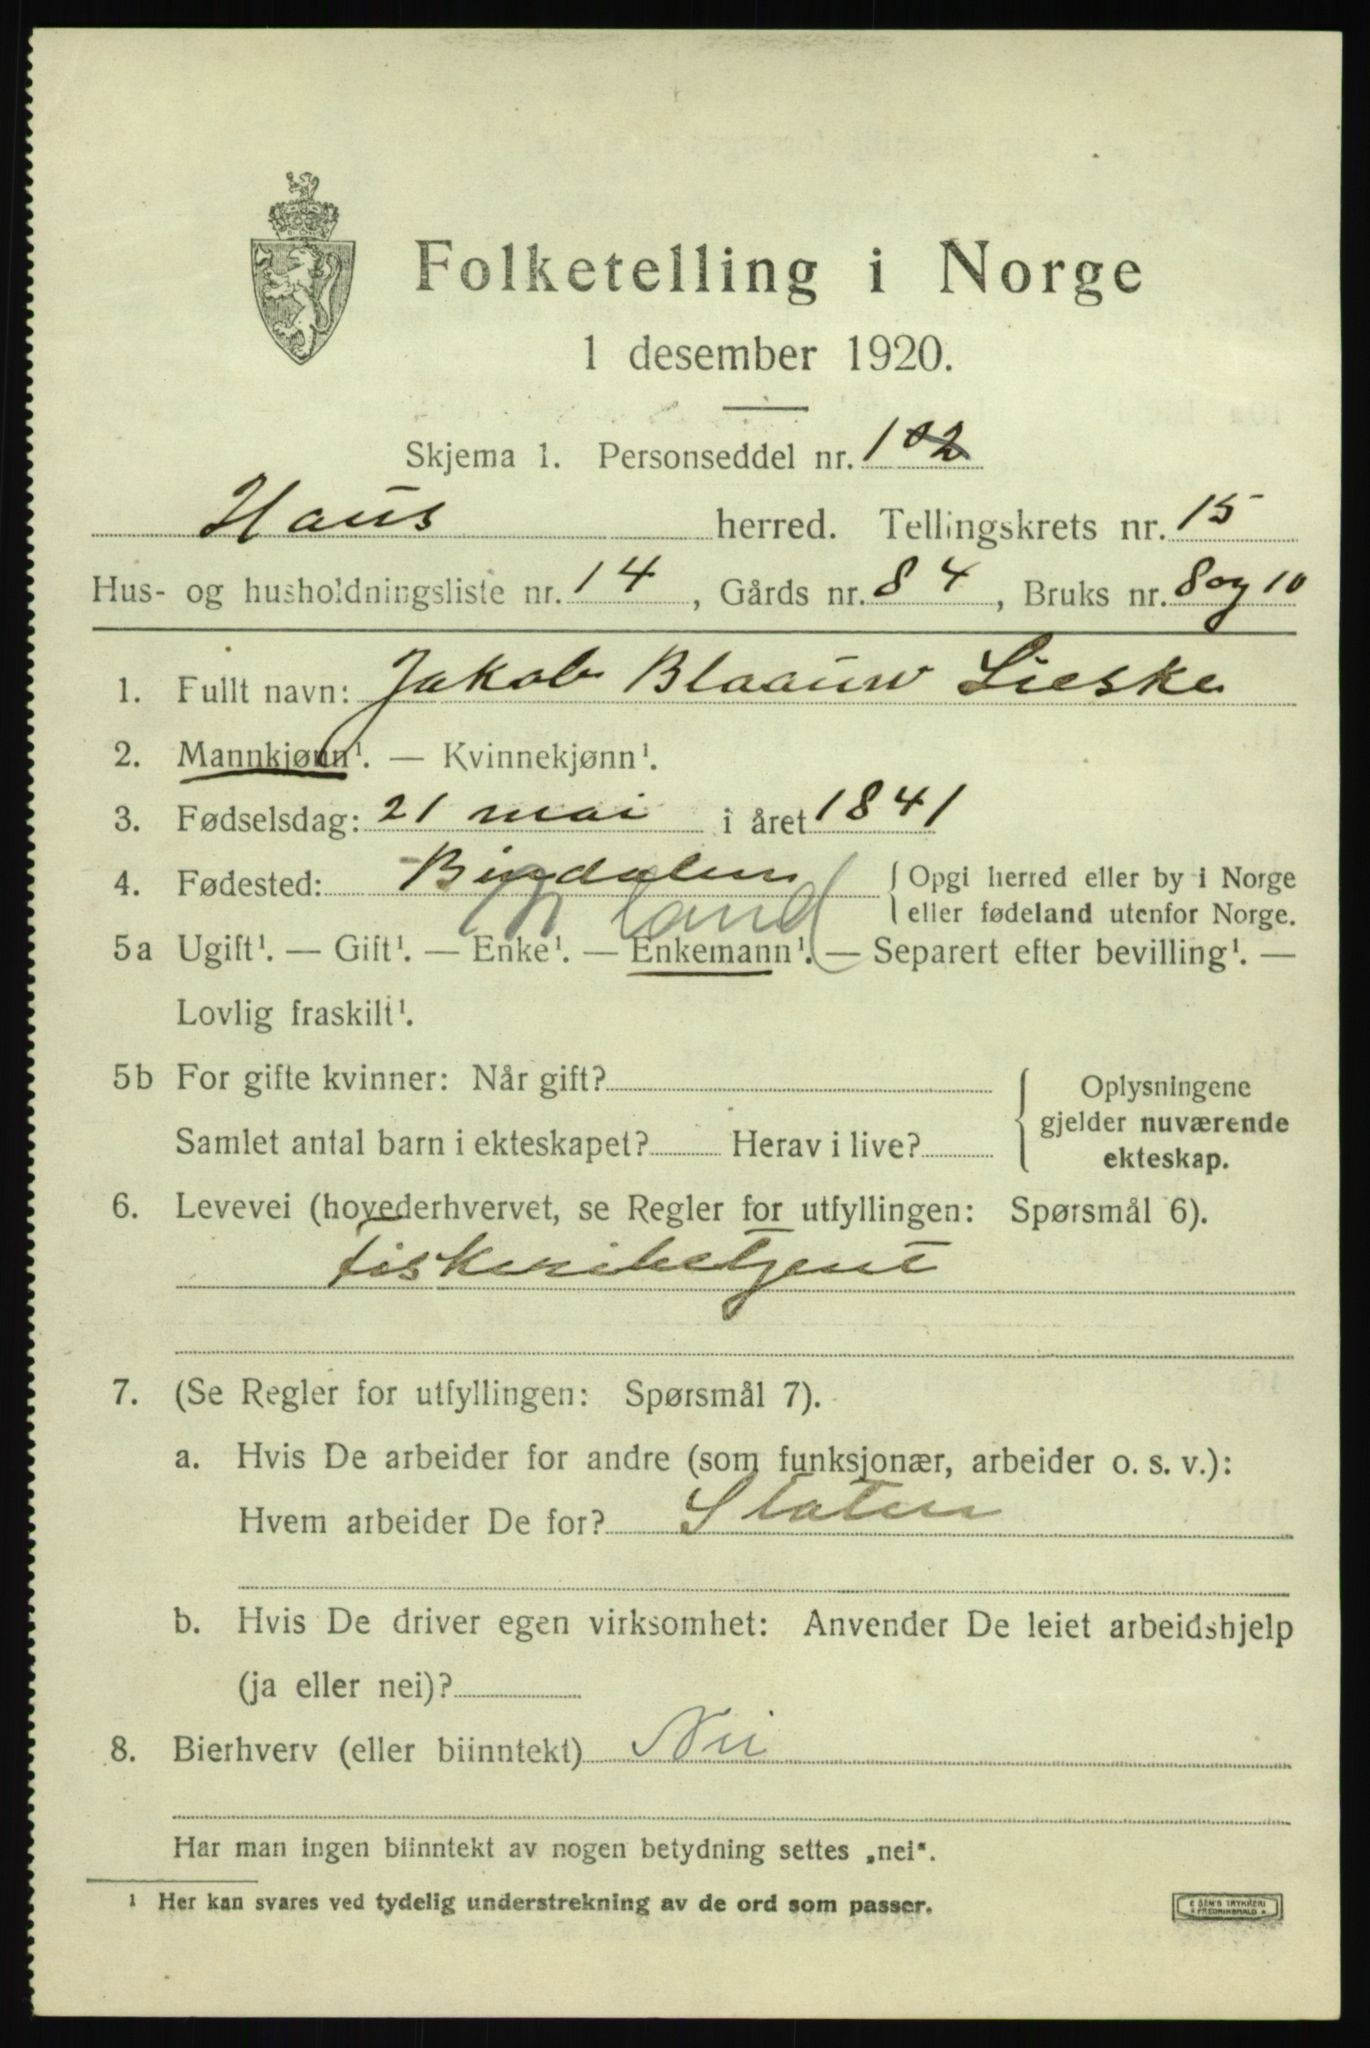 Folketelling i Norge
1 desember 1920.
Skjema 1. Personseddel nr. 102
Haus herred. Tellingskrets nr. 15
Hus- og husholdningsliste nr. 14, Gårds nr. 84, Bruks nr. 8 og 10
1. Fullt navn: Jakob Blaauw Lieske
2. Mannkjønn¹. — Kvinnekjønn¹.
3. Fødselsdag: 21 mai i året 1841
4. Fødested: Bindalen { Opgi herred eller by i Norge
eller fødeland utenfor Norge.
land
5a Ugift¹. — Gift¹. — Enke¹. — Enkemann¹. — Separert efter bevilling¹. —
Lovlig fraskilt¹.
5b For gifte kvinner: Når gift?
Samlet antal barn i ekteskapet? Herav i live?
{ Oplysningene
gjelder nuværende
ekteskap.
6. Levevei (hovederhvervet, se Regler for utfyllingen: Spørsmål 6).
Fiskeribetjent
7. (Se Regler for utfyllingen: Spørsmål 7).
a. Hvis De arbeider for andre (som funksjonær, arbeider o. s. v.):
Hvem arbeider De for? Staten
b. Hvis De driver egen virksomhet: Anvender De leiet arbeidshjelp
(ja eller nei)?
8. Bierhverv (eller biinntekt) Nei
Har man ingen biinntekt av nogen betydning settes „nei“.
¹ Her kan svares ved tydelig understrekning av de ord som passer.